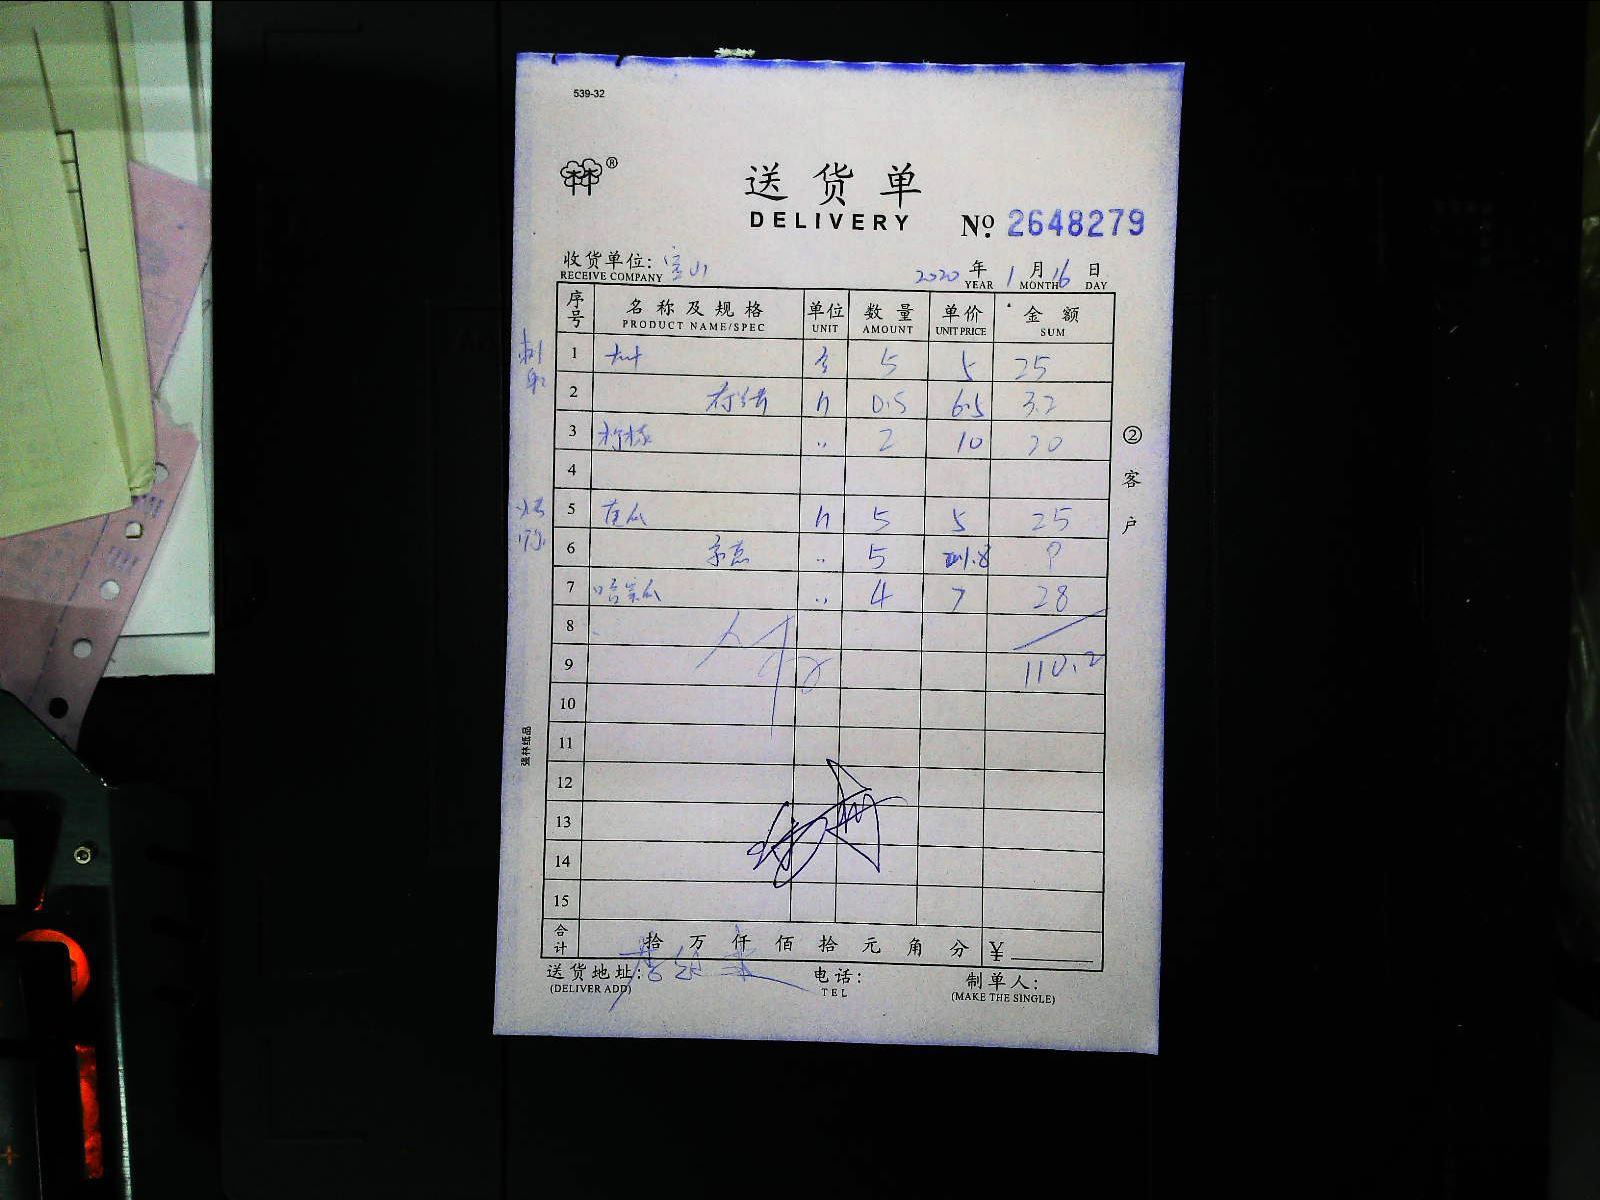 539-32
®
送货单
DELIVERY
№ 2648279
收货单位: 宝山
RECEIVE COMPANY
2020 年 1 月 16 日
YEAR MONTH DAY
序号 名称及规格 单位 数量 单价 金额
PRODUCT NAME/SPEC UNIT AMOUNT UNIT PRICE SUM
1 5 5 25
2 0.5 6.5 3.2
3 〃 2 10 20
4
5 黄瓜 5 5 25
6 〃 5 1.8 9
7 哈蜜瓜 〃 4 7 28
8
9 110.2
10
11
12
13
14
15
合计 拾 万 仟 佰 拾 元 角 分 ¥
送货地址: 电话: 制单人:
(DELIVER ADD) TEL (MAKE THE SINGLE)
②客户
强林纸品